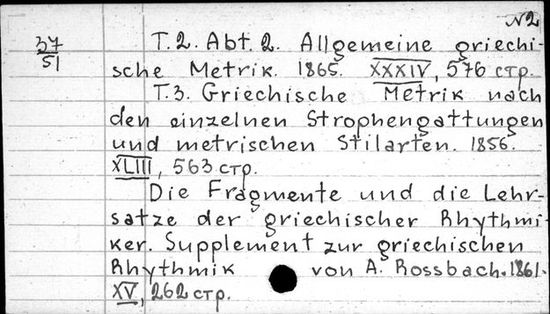 N2
37
51
T.2. Abt. 2. Allgemeine griechi-
sche Metrik. 1865. XXXIV, 576 стр.
T.3. Griechische Metrik nach
den einzelnen Strophengattungen
und metrischen Stilarten. 1856.
XLIII, 563 стр.
Die Fragmente und die Lehr-
satze der griechischer Rhythmi-
ker. Supplement zur griechischen
Rhythmik von A. Rossbach. 1861.
XV, 262 стр.